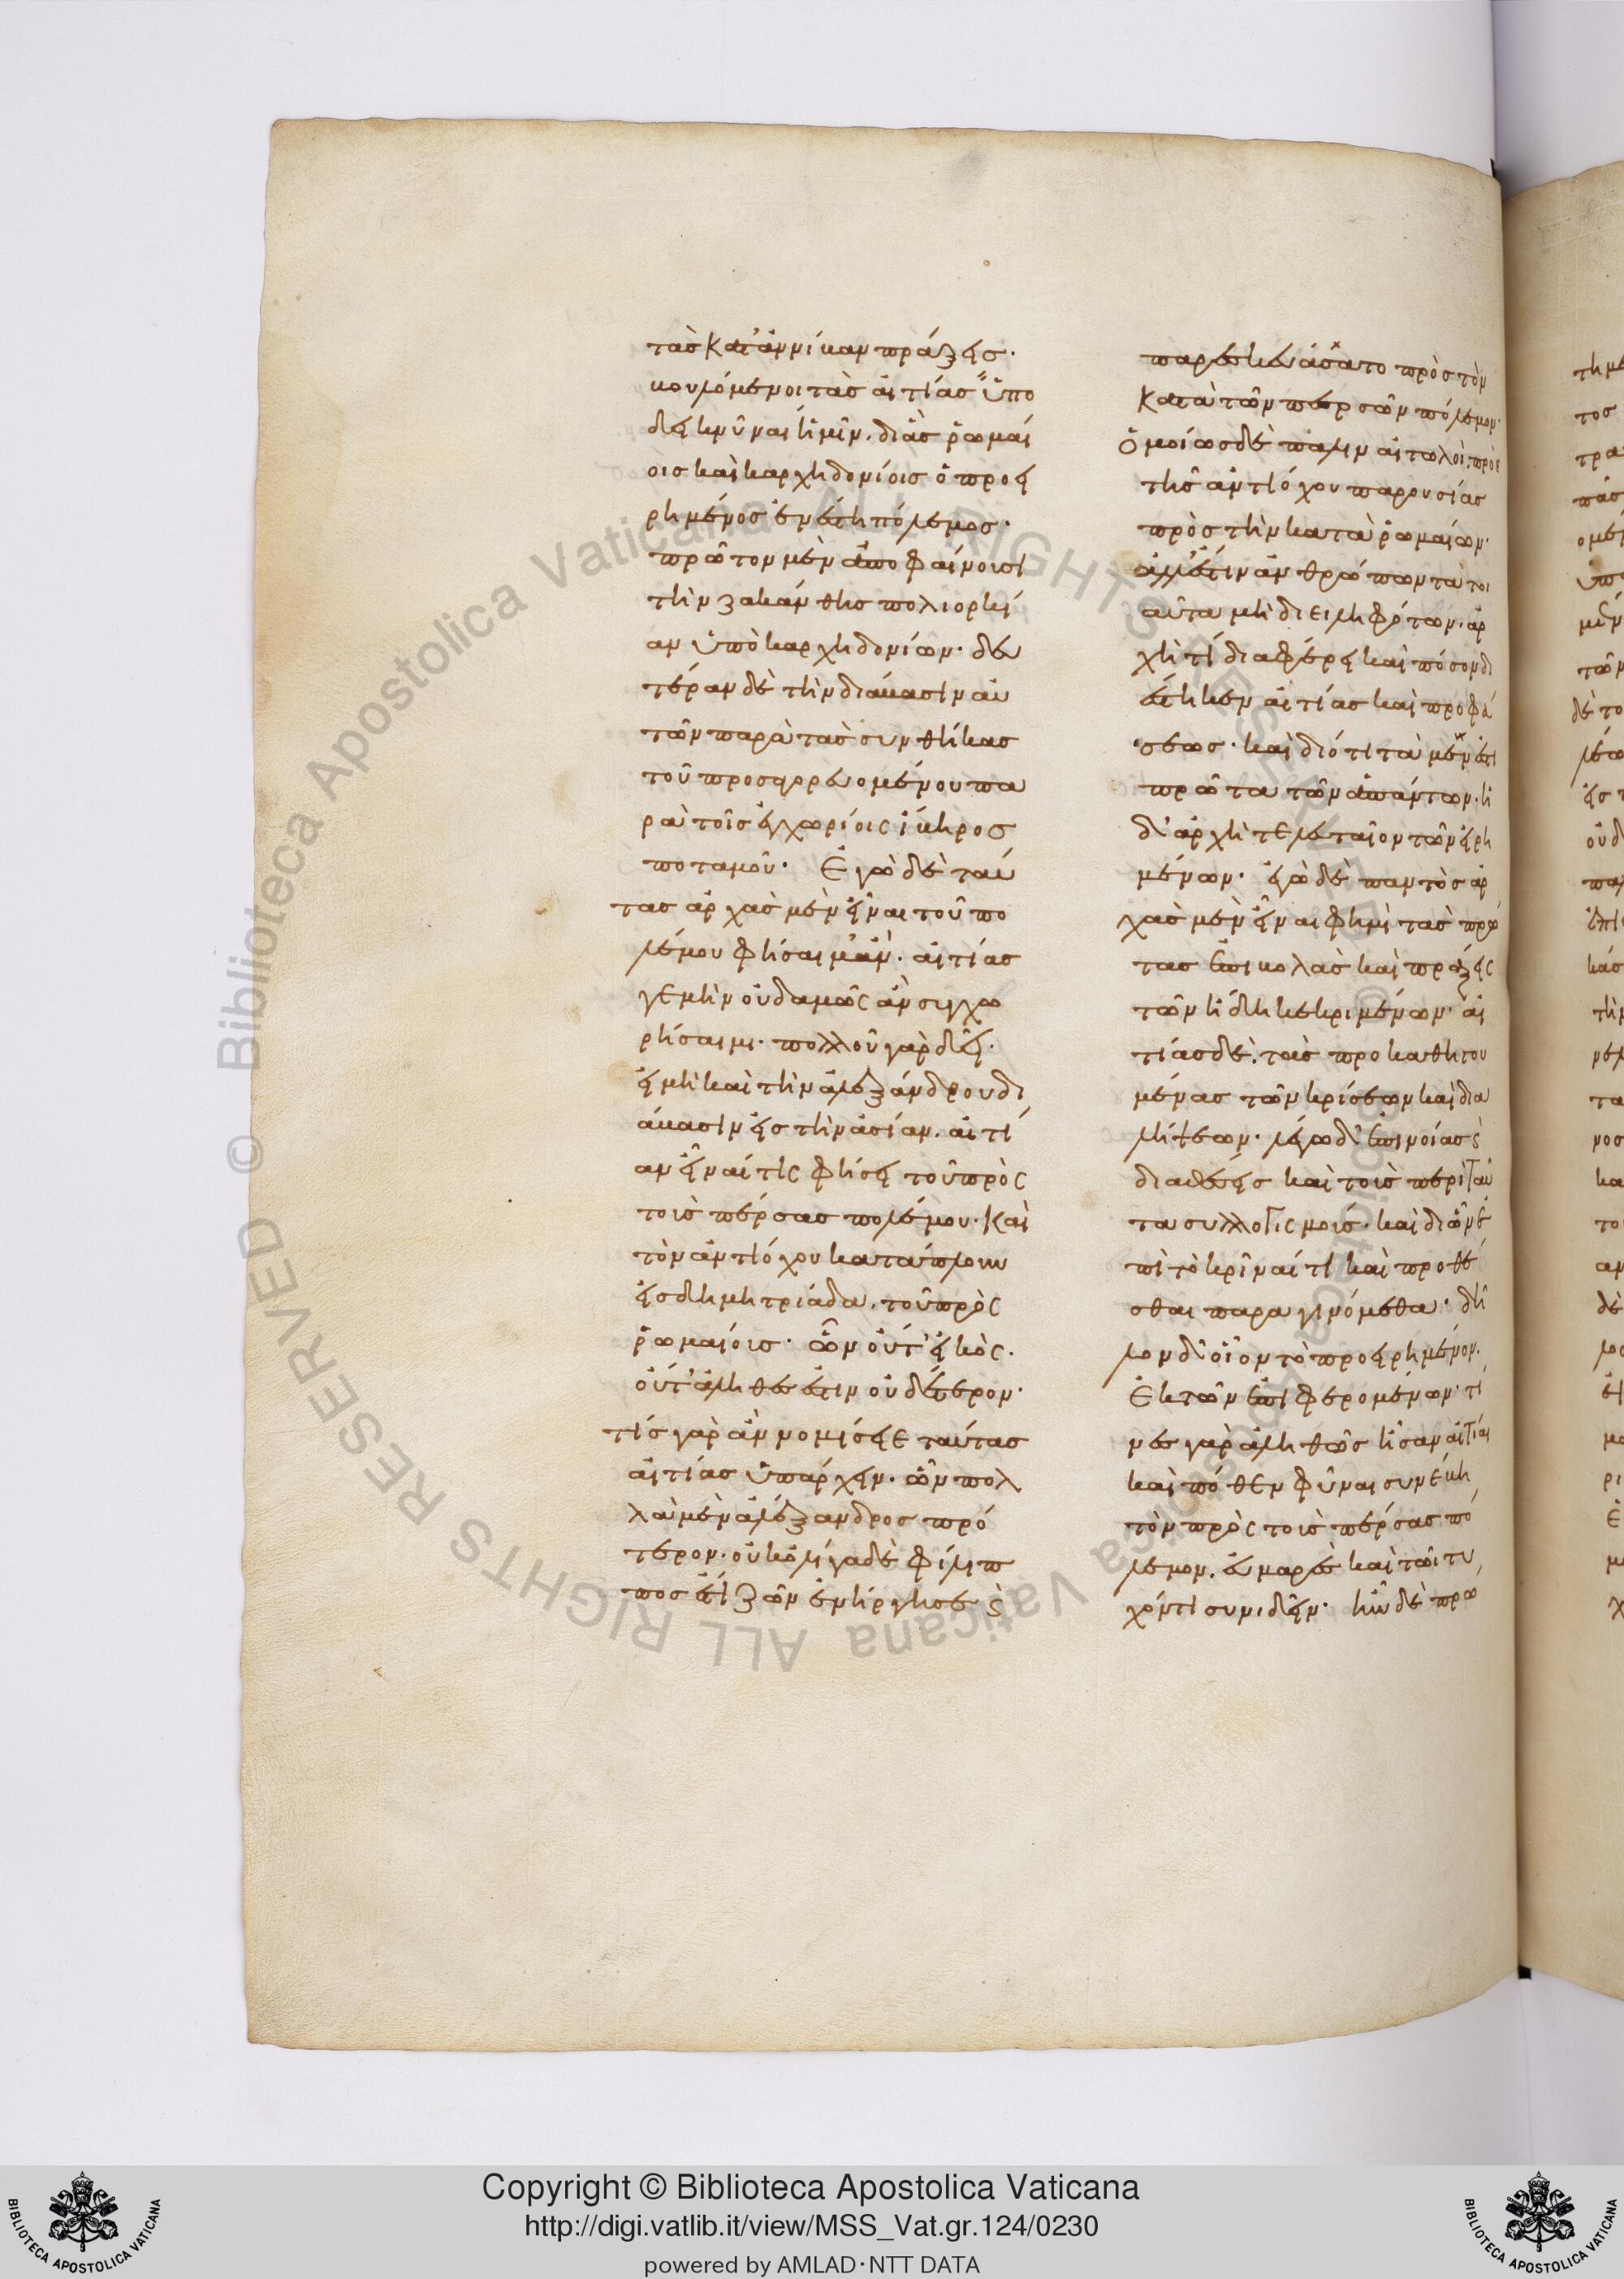 τὰσ κατ' ἀννίβαν πράξεισ·
βουλόμενοι τὰσ αἰτίασ ὑπο
δεικνῦναι ἡμῖν. δι' ἃσ ῥωμαί
οισ καὶ καρχηδονίοισ ὁ προει
ρημένοσ ἐνέστη πόλεμοσ·
πρῶτον μὲν ἀποφαίνουσι
τὴν ζακάνθησ πολιορκεί
αν ὑπὸ καρχηδονίων· δευ
τέραν δὲ τὴν διάβασιν αὐ
τῶν παρὰ τὰσ συνθήκασ
τοῦ προσαγορευομένου πα
ρὰ τοῖσ ἐγχωρίοισ ἴβηροσ
ποταμοῦ· Ἐγὼ δὲ ταύ
τασ ἀρχὰσ μὲν εἶναι τοῦ πο
λέμου φήσαιμ' ἄν. αἰτίασ
γε μὴν οὐδαμῶσ ἂν συγχω
ρήσαιμι· πολλοῦ γὰρ δεῖ·
εἰ μὴ καὶ τὴν ἀλεξάνδρου δι
άβασιν εἰσ τὴν ἀσίαν. αἰτί
αν εἶναί τισ φήσει τοῦ πρὸσ
τοὺσ πέρσασ πολέμου. Καὶ
τὸν ἀντιόχου κατάπλουν
εἰσ δημητριάδα. τοῦ πρὸσ
ῥωμαίουσ· ὧν οὔτ' εἰκὸσ.
οὔτ' ἀληθέσ ἐστιν οὐδέτερον·
τίσ γὰρ ἂν νομίσειε ταύτασ
αἰτίασ ὑπάρχειν. ὧν πολ
λὰ μὲν ἀλέξανδροσ πρό
τερον. οὐκ ὀλίγα δὲ φίλιπ
ποσ ἔτι ζῶν ἐνήργησε ϗ
παρεσκευάσατο πρὸσ τὸν
Κατὰ τῶν περσῶν πόλεμον·
Ὁμοίωσ δὲ πάλιν αἰτωλοὶ. πρὸ
τῆσ ἀντιόχου παρουσίασ
πρὸσ τὴν κατὰ ῥωμαίων·
ἀλλ' ἔστιν ἀνθρώπων τὰ τοι
αῦτα μὴ διειληφότων. ἀρ
χὴ τί διαφέρει καὶ πόσον δι
έστηκεν αἰτίασ καὶ προφά
σεωσ· καὶ διότι τὰ μέν ἐστι
πρῶτα τῶν ἁπάντων. ἡ
δ' ἀρχὴ τελευταῖον τῶν εἰρη
μένων· ἐγὼ δὲ παντὸσ ἀρ
χὰσ μὲν εἶναι φημὶ τὰσ πρώ
τασ ἐπιβολὰσ καὶ πράξεισ
τῶν ἤδη κεκριμένων· αἰ
τίασ δὲ. τὰσ προκαθηγου
μένασ τῶν κρίσεων καὶ δια
λήψεων· λέγω δ' ἐπινοίασ ϗ
διαθέσεισ καὶ τοὺσ περὶ ταῦ
τα συλλογισμούσ. καὶ δι' ὧν ἐ
πὶ τὸ κρῖναί τι καὶ προθέ
σθαι παραγινόμεθα· δῆ
λον δ' οἷον τὸ προειρημένον.
Ἐκ τῶν ἐπιφερομένων· τί
νεσ γὰρ ἀληθῶσ ἦσαν αἰτίαι
καὶ πόθεν φῦναι συνέβη
τὸν πρὸσ τοὺσ πέρσασ πό
λεμον. εὐμαρὲσ καὶ τῶι τυ
χόντι συνιδεῖν· ἦν δὲ πρώ
Copyright © Biblioteca Apostolica Vaticana
http://digi.vatlib.it/view/MSS_Vat.gr.124/0230
powered by AMLAD·NTT DATA
BIBLIOTECA APOSTOLICA VATICANA
BIBLIOTECA APOSTOLICA VATICANA
© Biblioteca Apostolica Vaticana ALL RIGHTS RESERVED
© Biblioteca Apostolica Vaticana ALL RIGHTS RESERVED